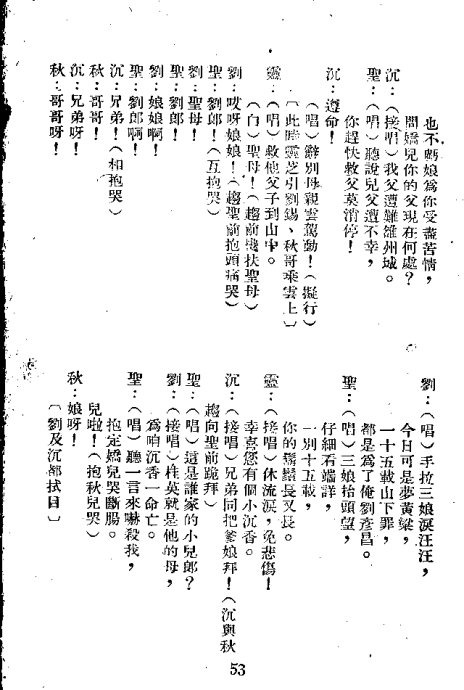 也不虧娘為你受盡苦情，
問嬌兒你的父現在何處？
沉：（接唱）我父遭難雒州城。
聖：（唱）聽說兒父遭不幸，
你趕快救父莫消停！
沉：遵命！
（唱）辭別母親雲駕動！（擬行）
〔此時靈芝引劉錫、秋哥乘雲上〕
靈：（唱）救他父子到山中。
（白）聖母！（趨前攙扶聖母）
劉：哎呀娘娘！（趨聖前抱頭痛哭）
聖：劉郎！（互抱哭）
劉：聖母！
聖：劉郎！
劉：娘娘啊！
聖：劉郎啊！
沉：兄弟！（相抱哭）
秋：哥哥！
沉：兄弟呀！
秋：哥哥呀！
劉：（唱）手拉三娘淚汪汪，
今日可是夢黃粱，
一十五載山下罪，
都是為了俺劉彥昌。
聖：（唱）三娘抬頭望，
仔細看端詳，
一別十五載，
你的鬍鬚長又長。
靈：（接唱）休流淚，免悲傷！
幸喜您有個小沉香。
沉：（接唱）兄弟同把爹娘拜！（沉與秋
趨向聖前跪拜）
聖：（唱）這是誰家的小兒郎？
劉：（接唱）桂英就是他的母，
為咱沉香一命亡。
聖：（唱）聽一言來嚇殺我，
抱定嬌兒哭斷腸。
兒啦！（抱秋兒哭）
秋：娘呀！
〔劉及沉都拭目〕
53